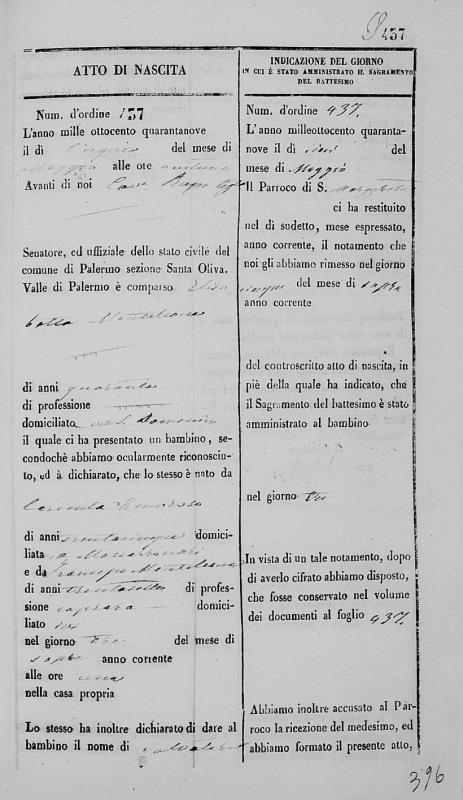 437
ATTO DI NASCITA
Num. d'ordine 437
L'anno mille ottocento quarantanove
il dì cinque del mese di
Maggio alle ore
Avanti di noi
Senatore, ed uffiziale dello stato civile del
comune di Palermo sezione Santa Oliva.
Valle di Palermo è comparso Elisa
betta Monteleone
di anni quaranta
di professione
domiciliata
il quale ci ha presentato un bambino, se-
condochè abbiamo ocularmente riconosciu-
to, ed à dichiarato, che lo stesso è nato da
Carmela Amoroso
di anni trentacinque domici-
liata
e da Monteleone
di anni di profes-
sione domici-
liato ivi
nel giorno tre del mese di
sopra anno corrente
alle ore una
nella casa propria
Lo stesso ha inoltre dichiarato di dare al
bambino il nome di Salvatore
INDICAZIONE DEL GIORNO
IN CUI È STATO AMMINISTRATO IL SAGRAMENTO
DEL BATTESIMO
Num. d'ordine 437.
L'anno milleottocento quaranta-
nove il dì del
mese di Maggio
Il Parroco di S. Margherita
ci ha restituito
nel dì sudetto, mese espressato,
anno corrente, il notamento che
noi gli abbiamo rimesso nel giorno
cinque del mese di sopra
anno corrente
del controscritto atto di nascita, in
piè della quale ha indicato, che
il Sagramento del battesimo è stato
amministrato al bambino
nel giorno tre
In vista di un tale notamento, dopo
di averlo cifrato abbiamo disposto,
che fosse conservato nel volume
dei documenti al foglio 437.
Abbiamo inoltre accusato al Par-
roco la ricezione del medesimo, ed
abbiamo formato il presente atto,
396